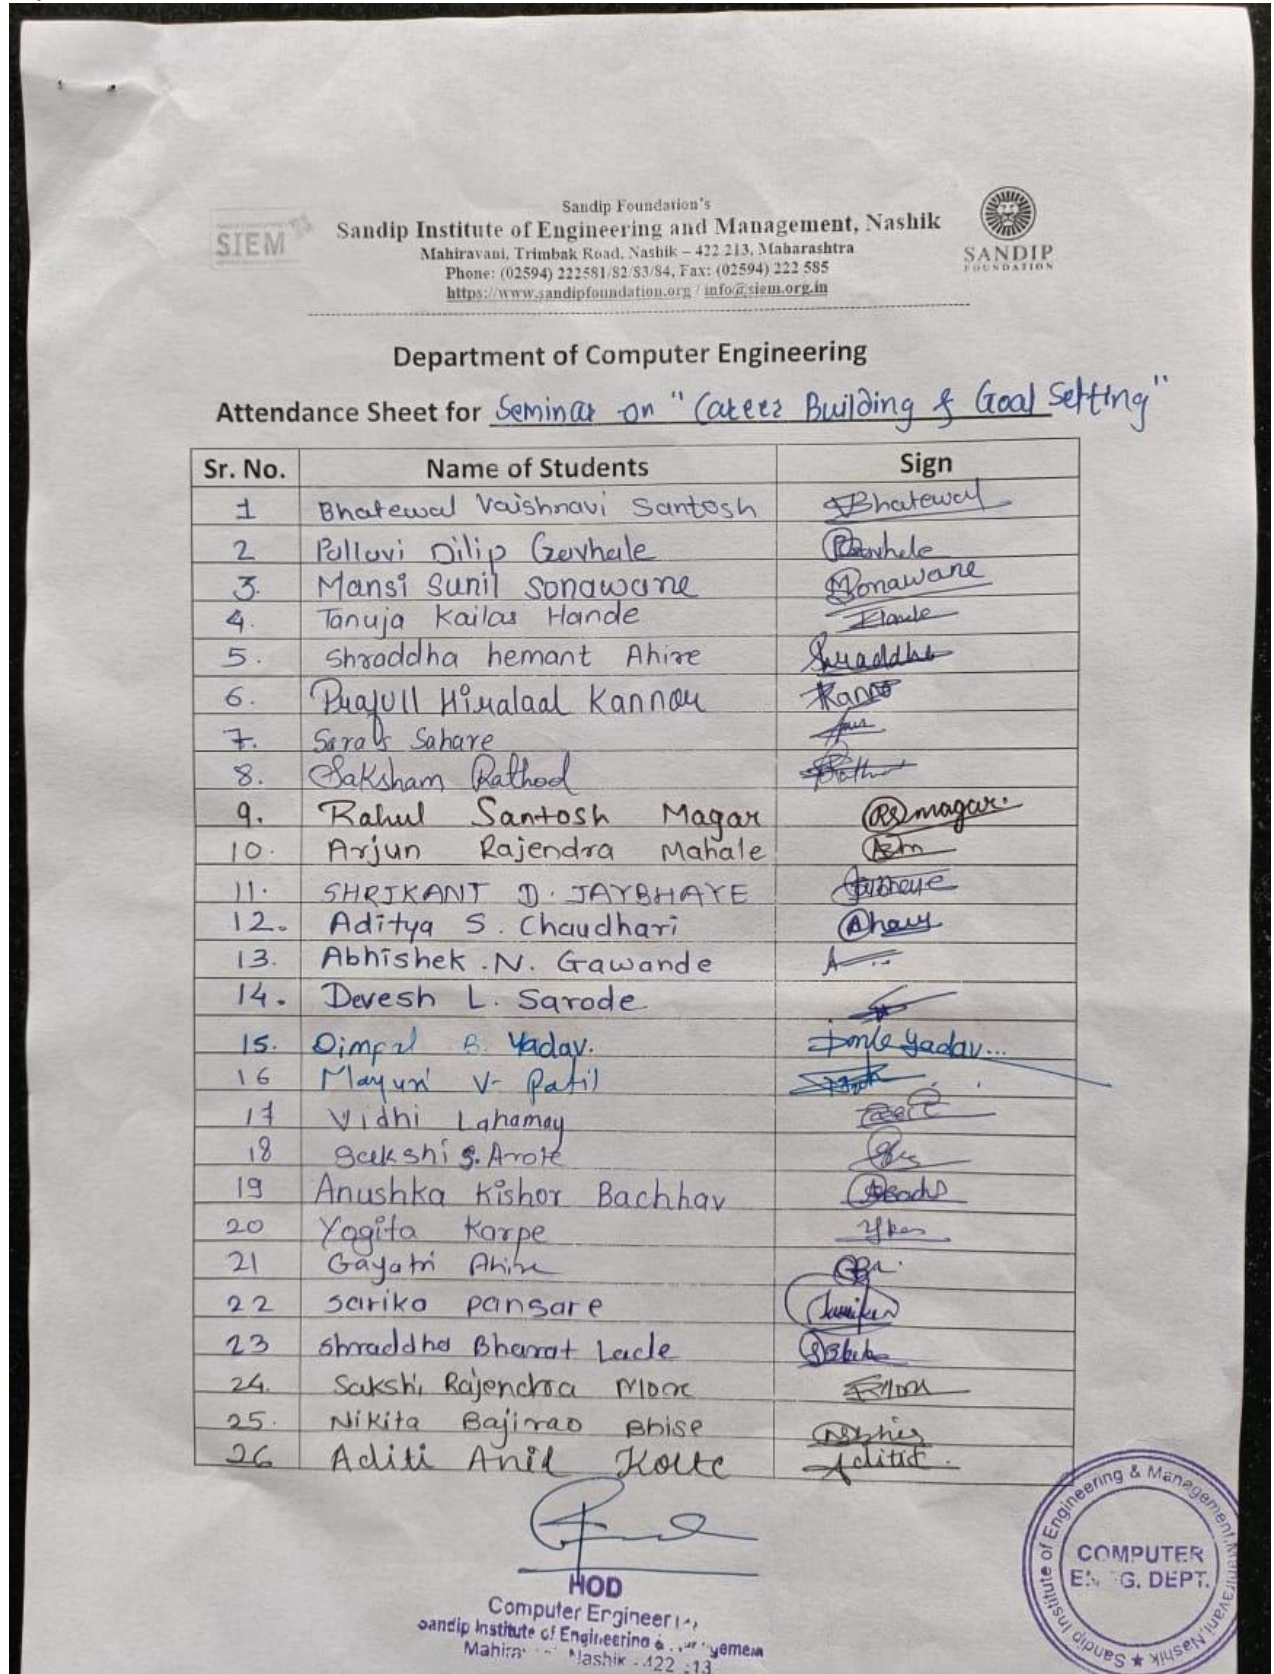 Sandip Foundation's
SIEM
Sandip Institute of Engineering and Management, Nashik
Mahiravani, Trimbak Road, Nashik – 422 213, Maharashtra
Phone: (02594) 222581/82/83/84, Fax: (02594) 222 585
https://www.sandipfoundation.org / info@siem.org.in
SANDIP
FOUNDATION
Department of Computer Engineering
Attendance Sheet for Seminar on "Career Building & Goal Setting"
Sr. No. Name of Students Sign
1 Bhatewal Vaishnavi Santosh Bhatewal
2 Pallavi Dilip Gevhale
3. Mansi Sunil Sonawane Sonawane
4. Tanuja Kailas Hande Hande
5. Shraddha hemant Ahire Shraddha
6. Prafull Hiralaal Kannor
7. Sahare
8. Saksham Rathod
9. Rahul Santosh Magar RSmagar.
10. Arjun Rajendra Mahale
11. SHRIKANT D. JAYBHAYE
12. Aditya S. Chaudhari
13. Abhishek .N. Gawande
14. Devesh L. Sarode
15. Dimpal B. Yadav. Yadav...
16 Mayuri V- Patil
17 Vidhi Lahamay
18 Sakshi S. Arote
19 Anushka Kishor Bachhav
20 Yogita Karpe
21 Gayatri Ahire
22 Sarika pansare
23 Shraddha Bharat Lade
24. Sakshi Rajendra More
25. Nikita Bajirao Bhise
26 Aditi Anil Kotte
HOD
Computer Engineer
Sandip Institute of Engineering
Nashik
Sandip Institute of Engineering & Management, Mahiravani, Nashik ★
COMPUTER
DEPT.